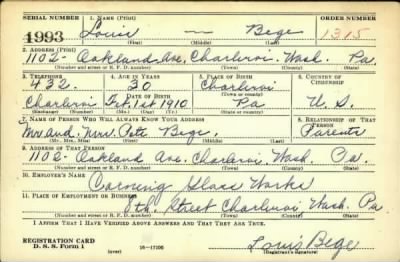 SERIAL NUMBER 1. NAME (Print) ORDER NUMBER
1993 Louis — Bege 1315
(First) (Middle) (Last)
2. ADDRESS (Print)
1102- Oakland Ave, Charleroi Wash. Pa.
(Number and street or R. F. D. number) (Town) (County) (State)
3. TELEPHONE 4. AGE IN YEARS 5. PLACE OF BIRTH 6. COUNTRY OF CITIZENSHIP
432. 30 Charleroi
DATE OF BIRTH (Town or county)
Charleroi Feb. 1st 1910 Pa U. S.
(Exchange) (Number) (Mo.) (Day) (Yr.) (State or country)
7. NAME OF PERSON WHO WILL ALWAYS KNOW YOUR ADDRESS 8. RELATIONSHIP OF THAT PERSON
Mr and. Mrs. Pete Bege. Parents
(Mr., Mrs., Miss) (First) (Middle) (Last)
9. ADDRESS OF THAT PERSON
1102- Oakland Ave. Charleroi, Wash Pa.
(Number and street or R. F. D. number) (Town) (County) (State)
10. EMPLOYER'S NAME
Corning Glass Works
11. PLACE OF EMPLOYMENT OR BUSINESS
8th. Street Charleroi Wash. Pa
(Number and street or R. F. D. number) (Town) (County) (State)
I AFFIRM THAT I HAVE VERIFIED ABOVE ANSWERS AND THAT THEY ARE TRUE.
REGISTRATION CARD
D. S. S. Form 1 (over) 16—17105 Louis Bege
(Registrant's Signature)